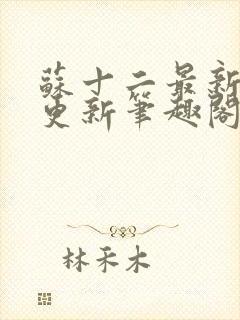 蘇十二最新
更新筆趣閣
林禾木